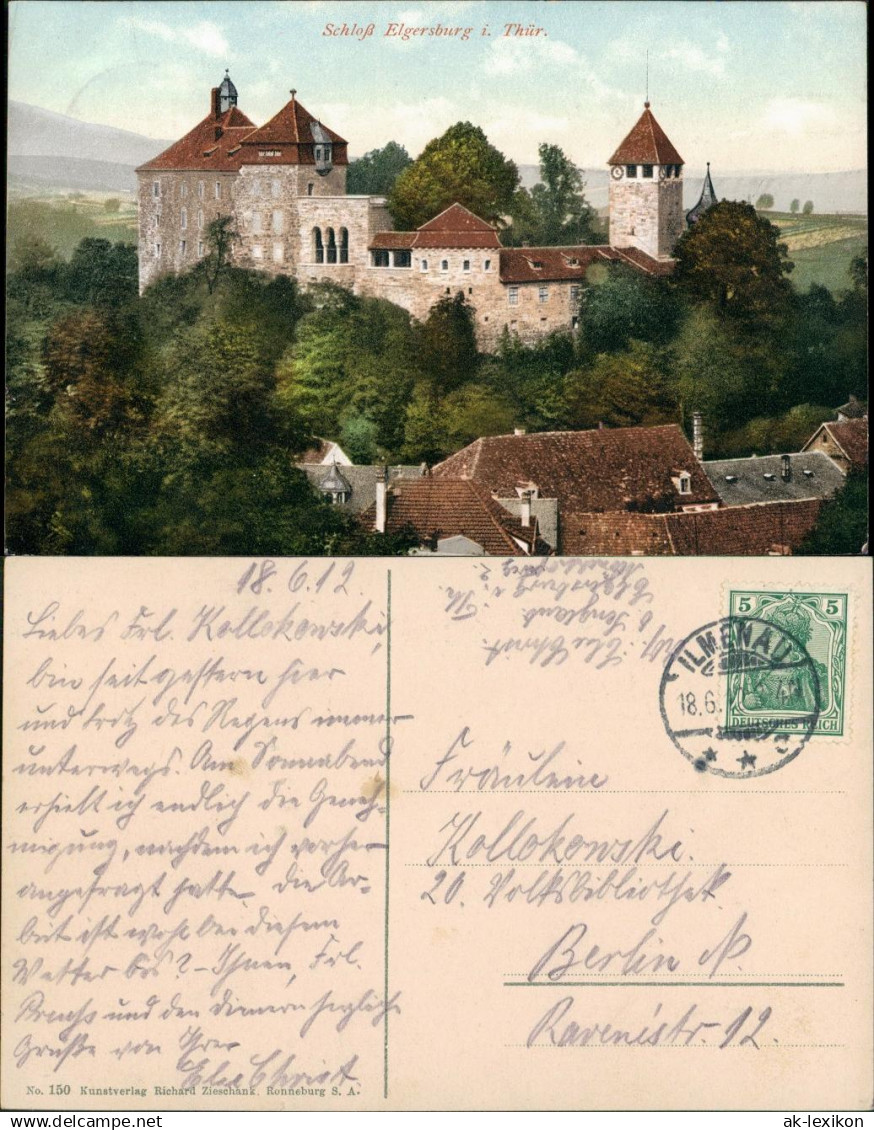 Schloß Elgersburg i. Thür.
18.6.12
Liebes Frl. Kollokowski,
bin seit gestern hier
und trotz des Regens immer
unterwegs. Am Sonnabend
erhielt ich endlich die Geneh-
migung, nachdem ich vorher
angefragt hatte. Die Ar-
beit ist wohl bei diesem
Wetter bes? - Ihnen, Frl.
und den Dienern herzliche
Grüße von Ihrer
Else Christ
No. 150 Kunstverlag Richard Zieschank, Ronneburg S. A.
Abs. Else Christ
Elgersburg i. Th.
5 5
DEUTSCHES REICH
ILMENAU
18.6.
Fräulein
Kollokowski.
20. Volksbibliothek
Berlin N.
Ravenéstr. 12.
ak-lexikon
DELCAMPE